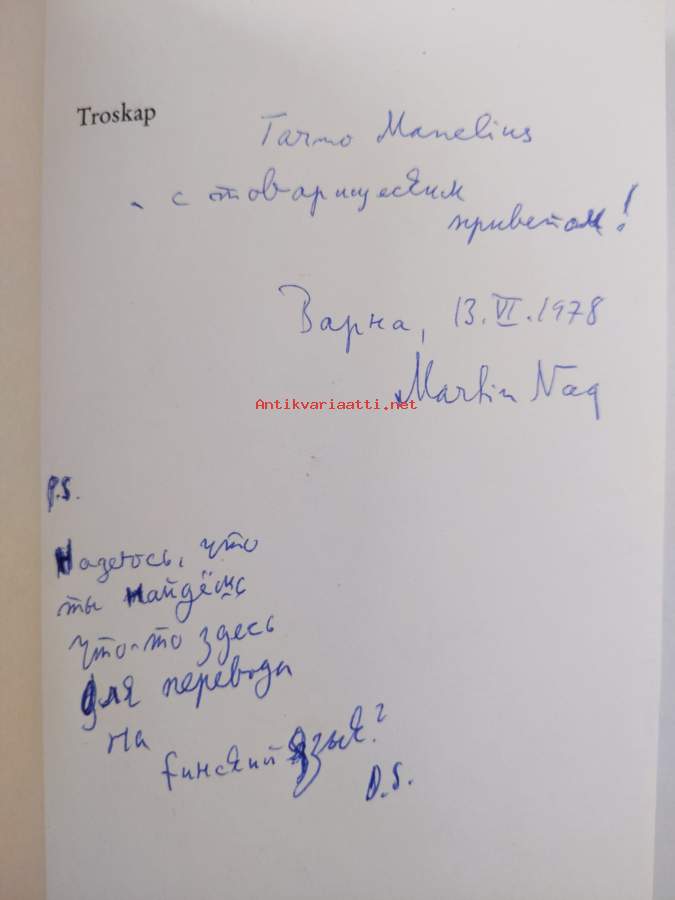 Troskap
Tarmo Manelius
- с товарищеским
приветом!
Варна, 13.VI.1978
Martin Nag
Antikvariaatti.net
P.S.
Надеюсь, что
ты найдёшь
что-то здесь
для перевода
на
финский язык?
D.S.